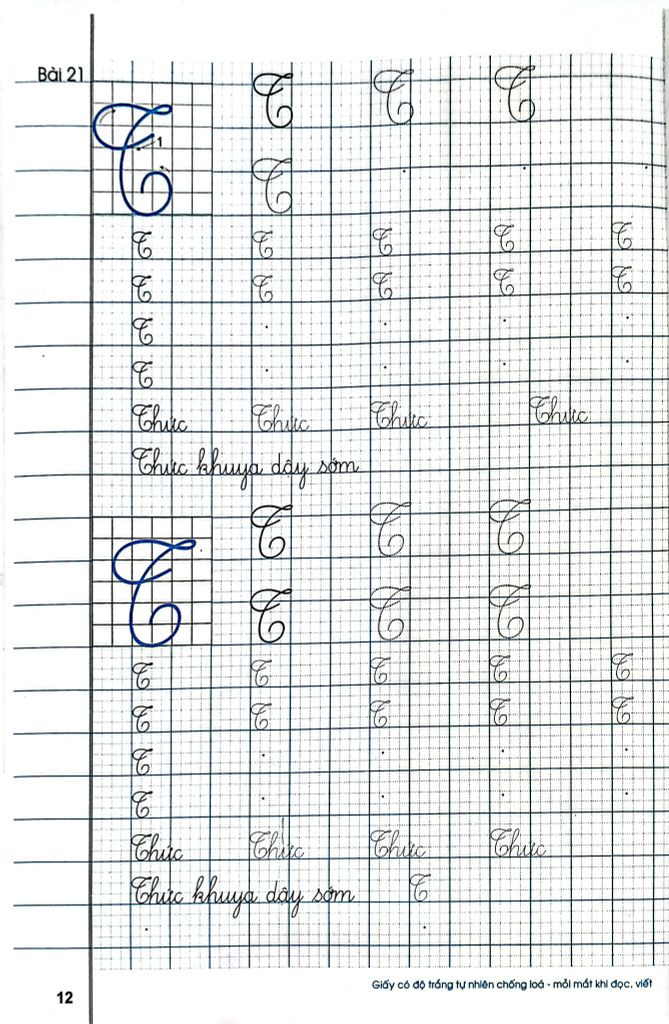 Bài 21
T T T T
1
T
T T T T T
T T T T T
T
T
Thức Thức Thức Thức
Thức khuya dậy sớm
T T T T
T T T
T T T T T
T T T T T
T
T
Thức Thức Thức Thức
Thức khuya dậy sớm T
12
Giấy có độ trắng tự nhiên chống loá - mỏi mắt khi đọc, viết